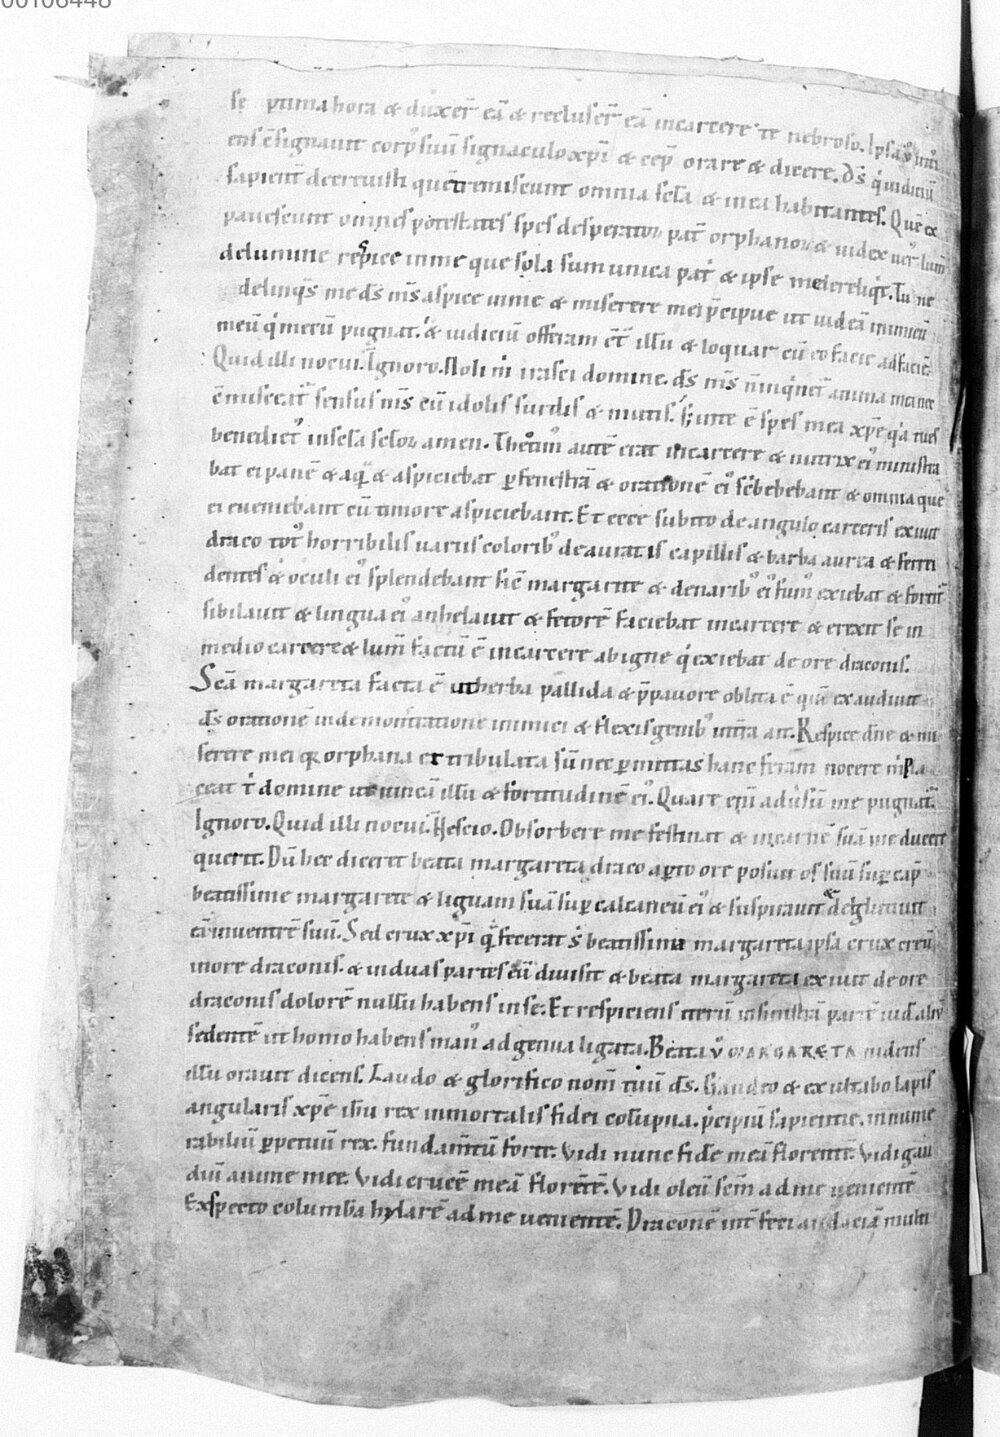 00106448
se ptima hora & duxer̄ eā & recluser̄ eā incarcere te nebroso. Ipsa
ens ē signauit corp᷒ suū signaculo xp̄i & cep̄ orare & dicere. ds̄ q̇ iudiciū
sapient̄ decreuisti quē tremiscunt omnia sc̄la & inea habitantes. Quē ex
pauescunt omnes potestates spes desperatoꝝ pat̄ orphanoꝝ & iudex uer᷒ lum̄
delumine respice inme que sola sum unica pat̄ & ipse me dereliq̇t. Tu ne
delinq̄s me ds̄ ms̄ aspice inme & miserere mei p̄cipue ut uideā inimicū
meū q̇ mecū pugnat. & iudiciū offeram ēt̄ illū & loquar cū eo facie adfaciē.
Quid illi nocui. Ignoro. Noli m̄ irasci domine. ds̄ ms̄ anima mea nec
ē sensus ms̄ cū idolis surdis & mutis. S; inte ē spes mea xp̄e q̇a tu es
benedict᷒ insc̄la sc̄loꝝ amen. Theotim᷒ autē erat incarcere & nutrix ei᷒ ministra
bat ei panē & aq̄ & aspiciebat ꝑ fenestrā & orationē ei᷒ sc̄bebant & omnia que
ei eueniebant cū timore aspiciebant. Et ecce subito de angulo carceris exiuit
draco tot᷒ horribilis uariis colorib᷒ deauratis capillis & barba aurea & ferrei
dentes & oculi ei᷒ splendebant sic̄ margarite & denarib᷒ ei᷒ fum᷒ exiebat & fortit̄
sibilauit & lingua ei᷒ anhelauit & fetorē faciebat incarcere & erexit se in
medio carcere & lum̄ factū ē incarcere abigne q̇ exiebat de ore draconis.
Sc̄a margareta facta ē ut herba pallida & p̄ pauore oblita ē quē exaudiuit
ds̄ orationē indemonstratione inimici & flexis genib᷒ intr̄a ait. Respice dn̄e & mi
serere mei q̄ orphana et tribulata sū nec ꝑmittas hanc feram nocere m̄ Pla
ceat t̄ domine ut uincā illū & fortitudinē ei᷒. Quare enī aduersū me pugnat.
Ignoro. Quid illi nocui. Nescio. Obsorbere me festinat & incarnē suā me ducere
querit. Dū hec diceret beata margareta draco aꝑto ore posuit os suū suꝑ cap̄
beatissime margarete & liguam suā suꝑ calcaneū ei᷒ & suspirauit & deglutiuit
eā inuentrē suū. Sed crux xp̄i q̄ fecerat s̄ beatissima margareta ipsa crux creū
inore draconis. & induas partes eū diuisit & beata margareta exiuit de ore
draconis dolorē nullū habens inse. Et respiciens iterū insinistrā partē uid̄ aliū
sedentē ut homo habens man᷒ adgenua ligata. Beata v̇ MARGARETA uidens
illū orauit dicens. Laudo & glorifico nom̄ tuū ds̄. Gaudeo & exultabo lapis
angularis xp̄e ih̄u rex inmortalis fidei columpna. p̄cipiū sapientie. innume
rabiliū ꝑpetuū rex. fundam̄tū forte. Vidi nunc fidē meā florentē. Vidi gau
diū anime mee. Vidi crucē meā florētē. Vidi oleū sc̄m adme uenientē
Exspecto columbā hylarē adme uenientē. Draconē int̄feci audaciā multi